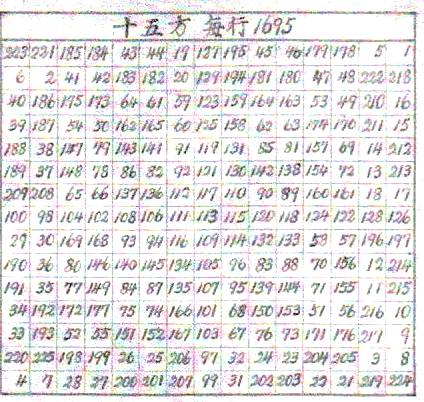 十五方 每行1695
223 221 185 184 43 44 19 127 195 45 46 179 178 5 1
6 2 41 42 183 182 20 129 194 181 180 47 48 222 218
40 186 175 173 64 61 59 123 159 164 163 53 49 210 16
39 187 54 50 162 165 60 125 158 62 63 174 170 211 15
188 38 147 79 143 141 91 119 131 85 81 157 69 14 212
189 37 148 78 86 82 92 121 130 142 138 154 72 13 213
209 208 65 66 137 136 112 117 110 90 89 160 161 18 17
100 98 104 102 108 106 111 113 115 120 118 124 122 128 126
29 30 169 168 93 94 116 109 114 132 133 58 57 196 197
190 36 80 146 140 145 134 105 96 83 88 70 156 12 214
191 35 77 149 84 87 135 107 95 139 144 71 155 11 215
34 192 172 177 75 74 166 101 68 150 153 51 56 216 10
33 193 52 55 151 152 167 103 67 76 73 171 176 217 9
220 225 198 199 26 25 206 97 32 24 23 204 205 3 8
4 7 28 27 200 201 207 99 31 202 203 22 21 219 224